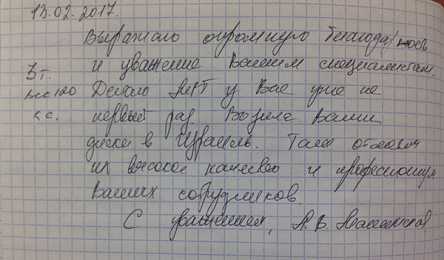 13.02.2017.
Выражаю огромную благодарность
и уважение Вашим специалистам.
Делаю МРТ у Вас уже не
первый раз. Возила Ваши
диски в Израиль. Там отметили
их высокое качество и профессионализм
Ваших сотрудников.
С уважением, А. В.